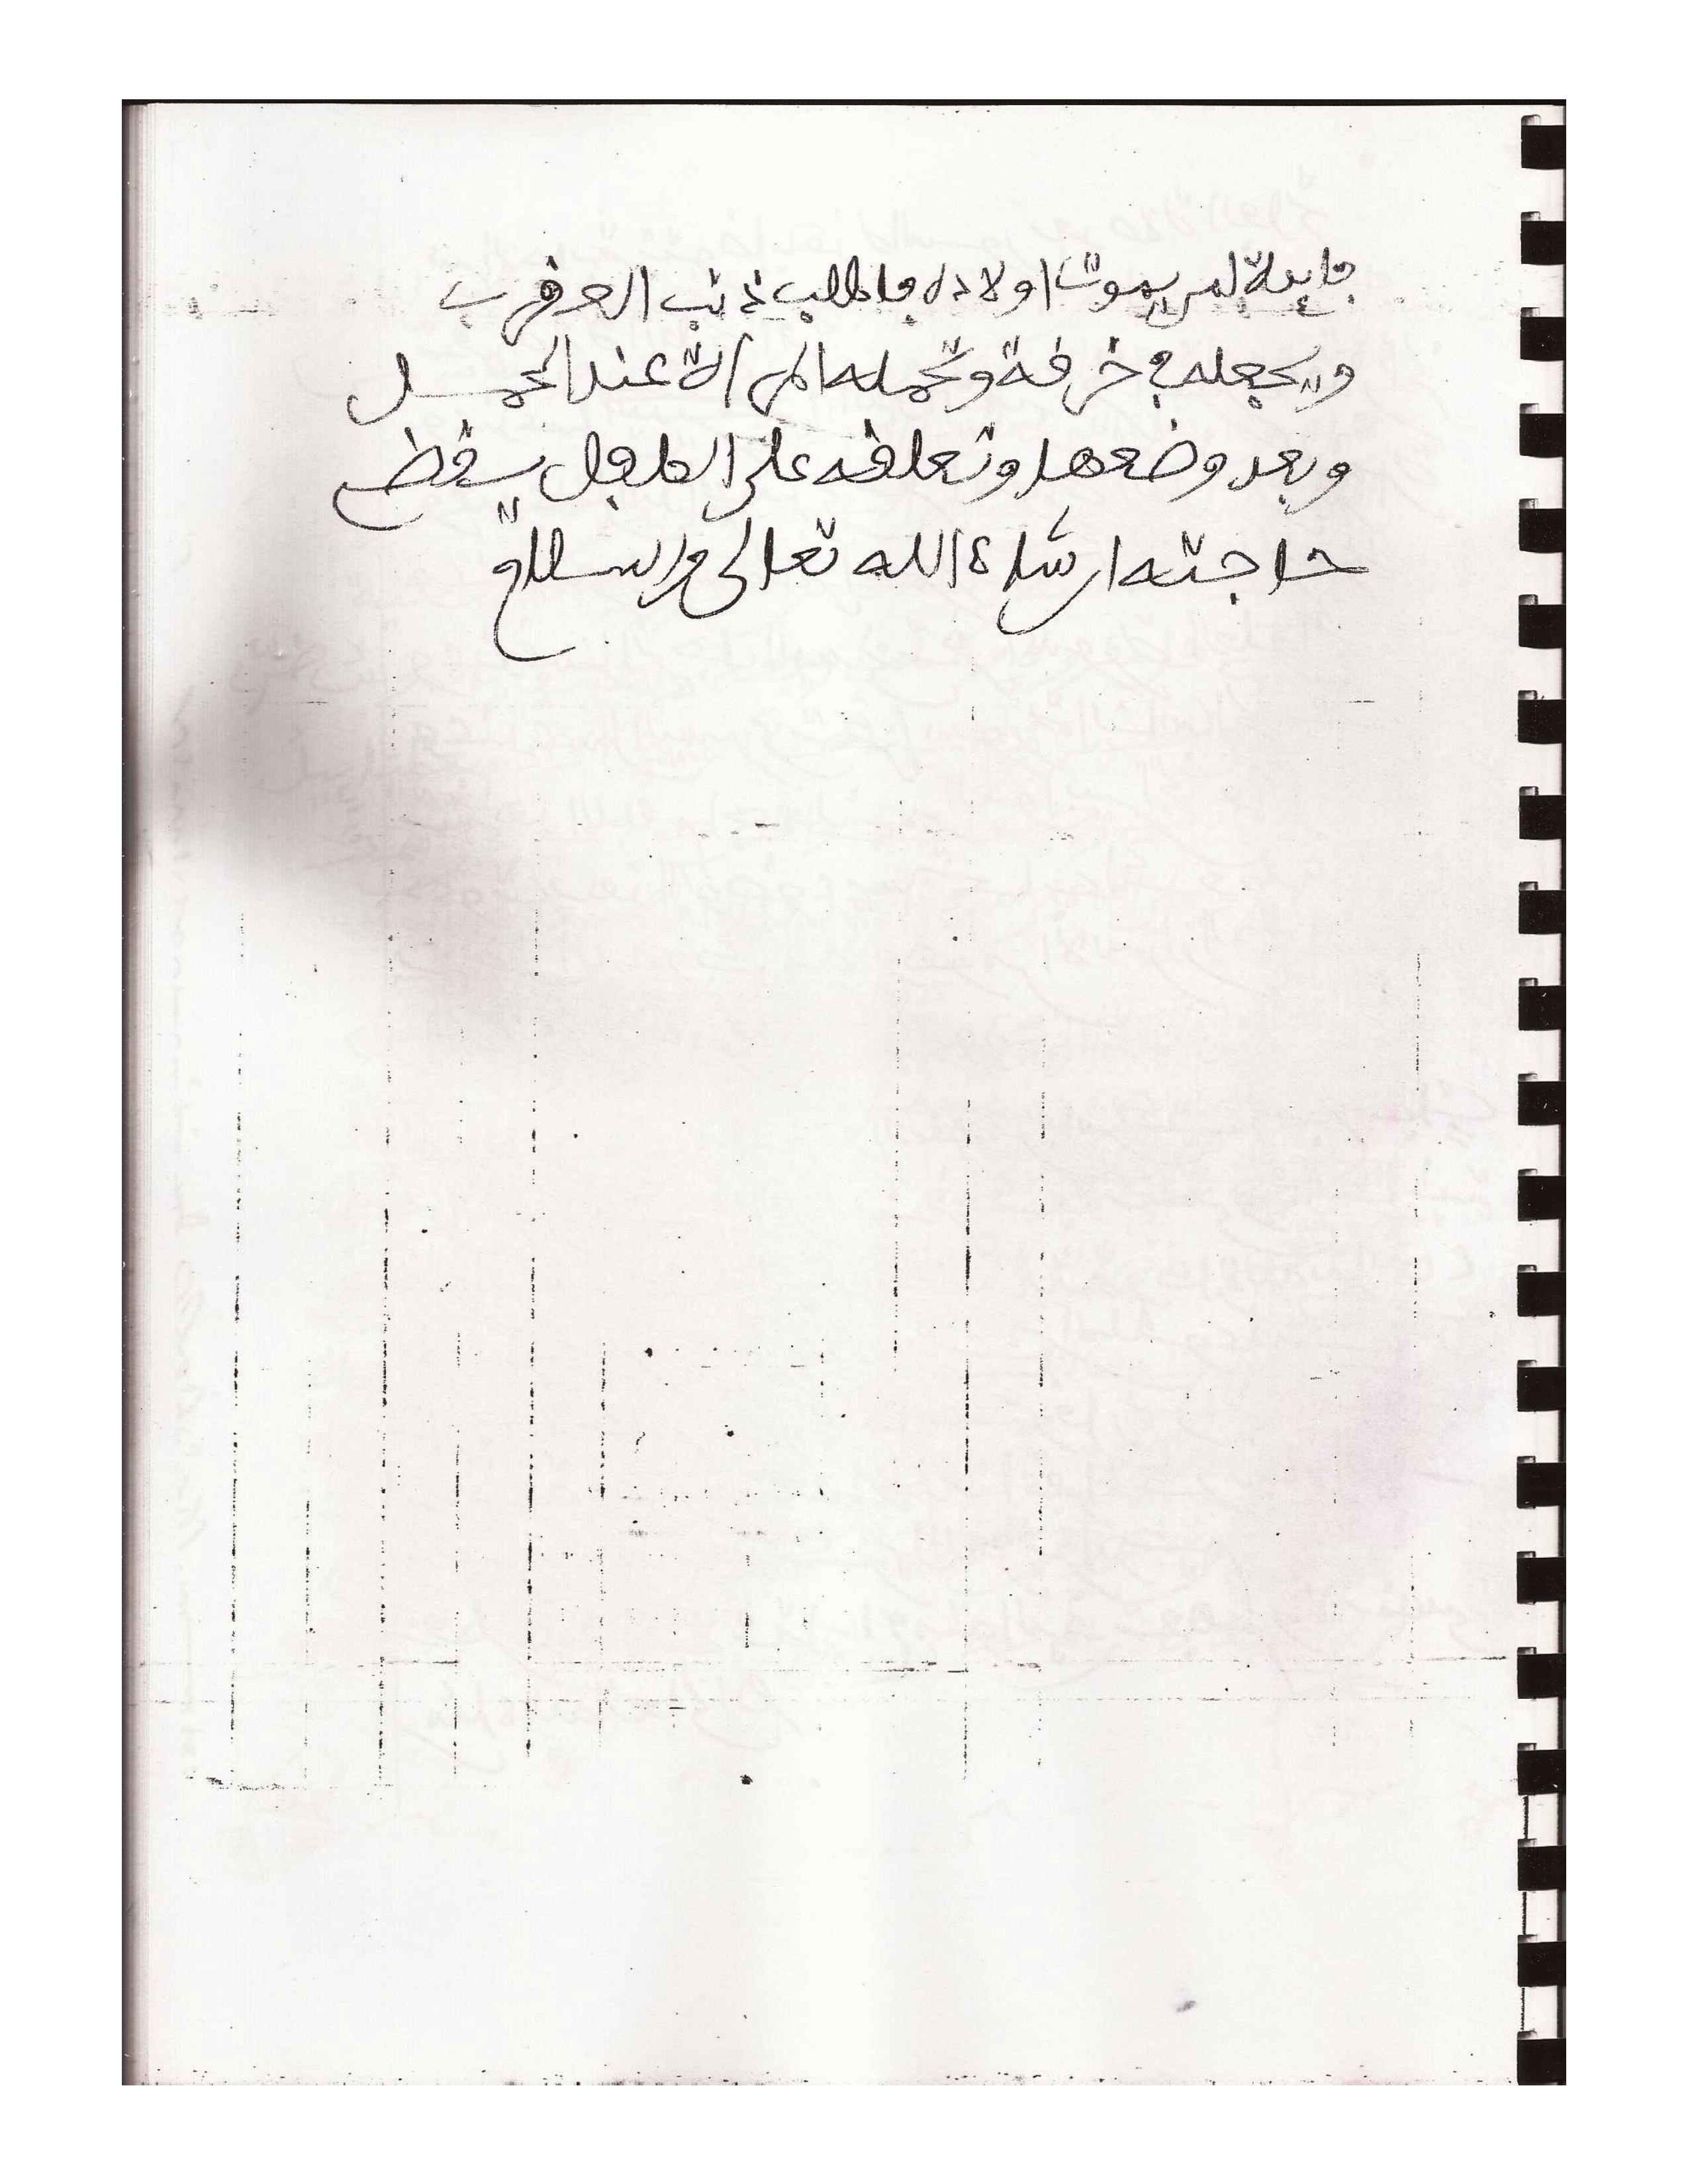 فايدة لمن يموت اولاده فاطلب ذنب العقرب
ويجعله في خرقة وتحمله المراة عند الحمل
وبعد وضعها وتعلقه على الطفل يـقض
حاجته ان شاء الله تعالى والسلام